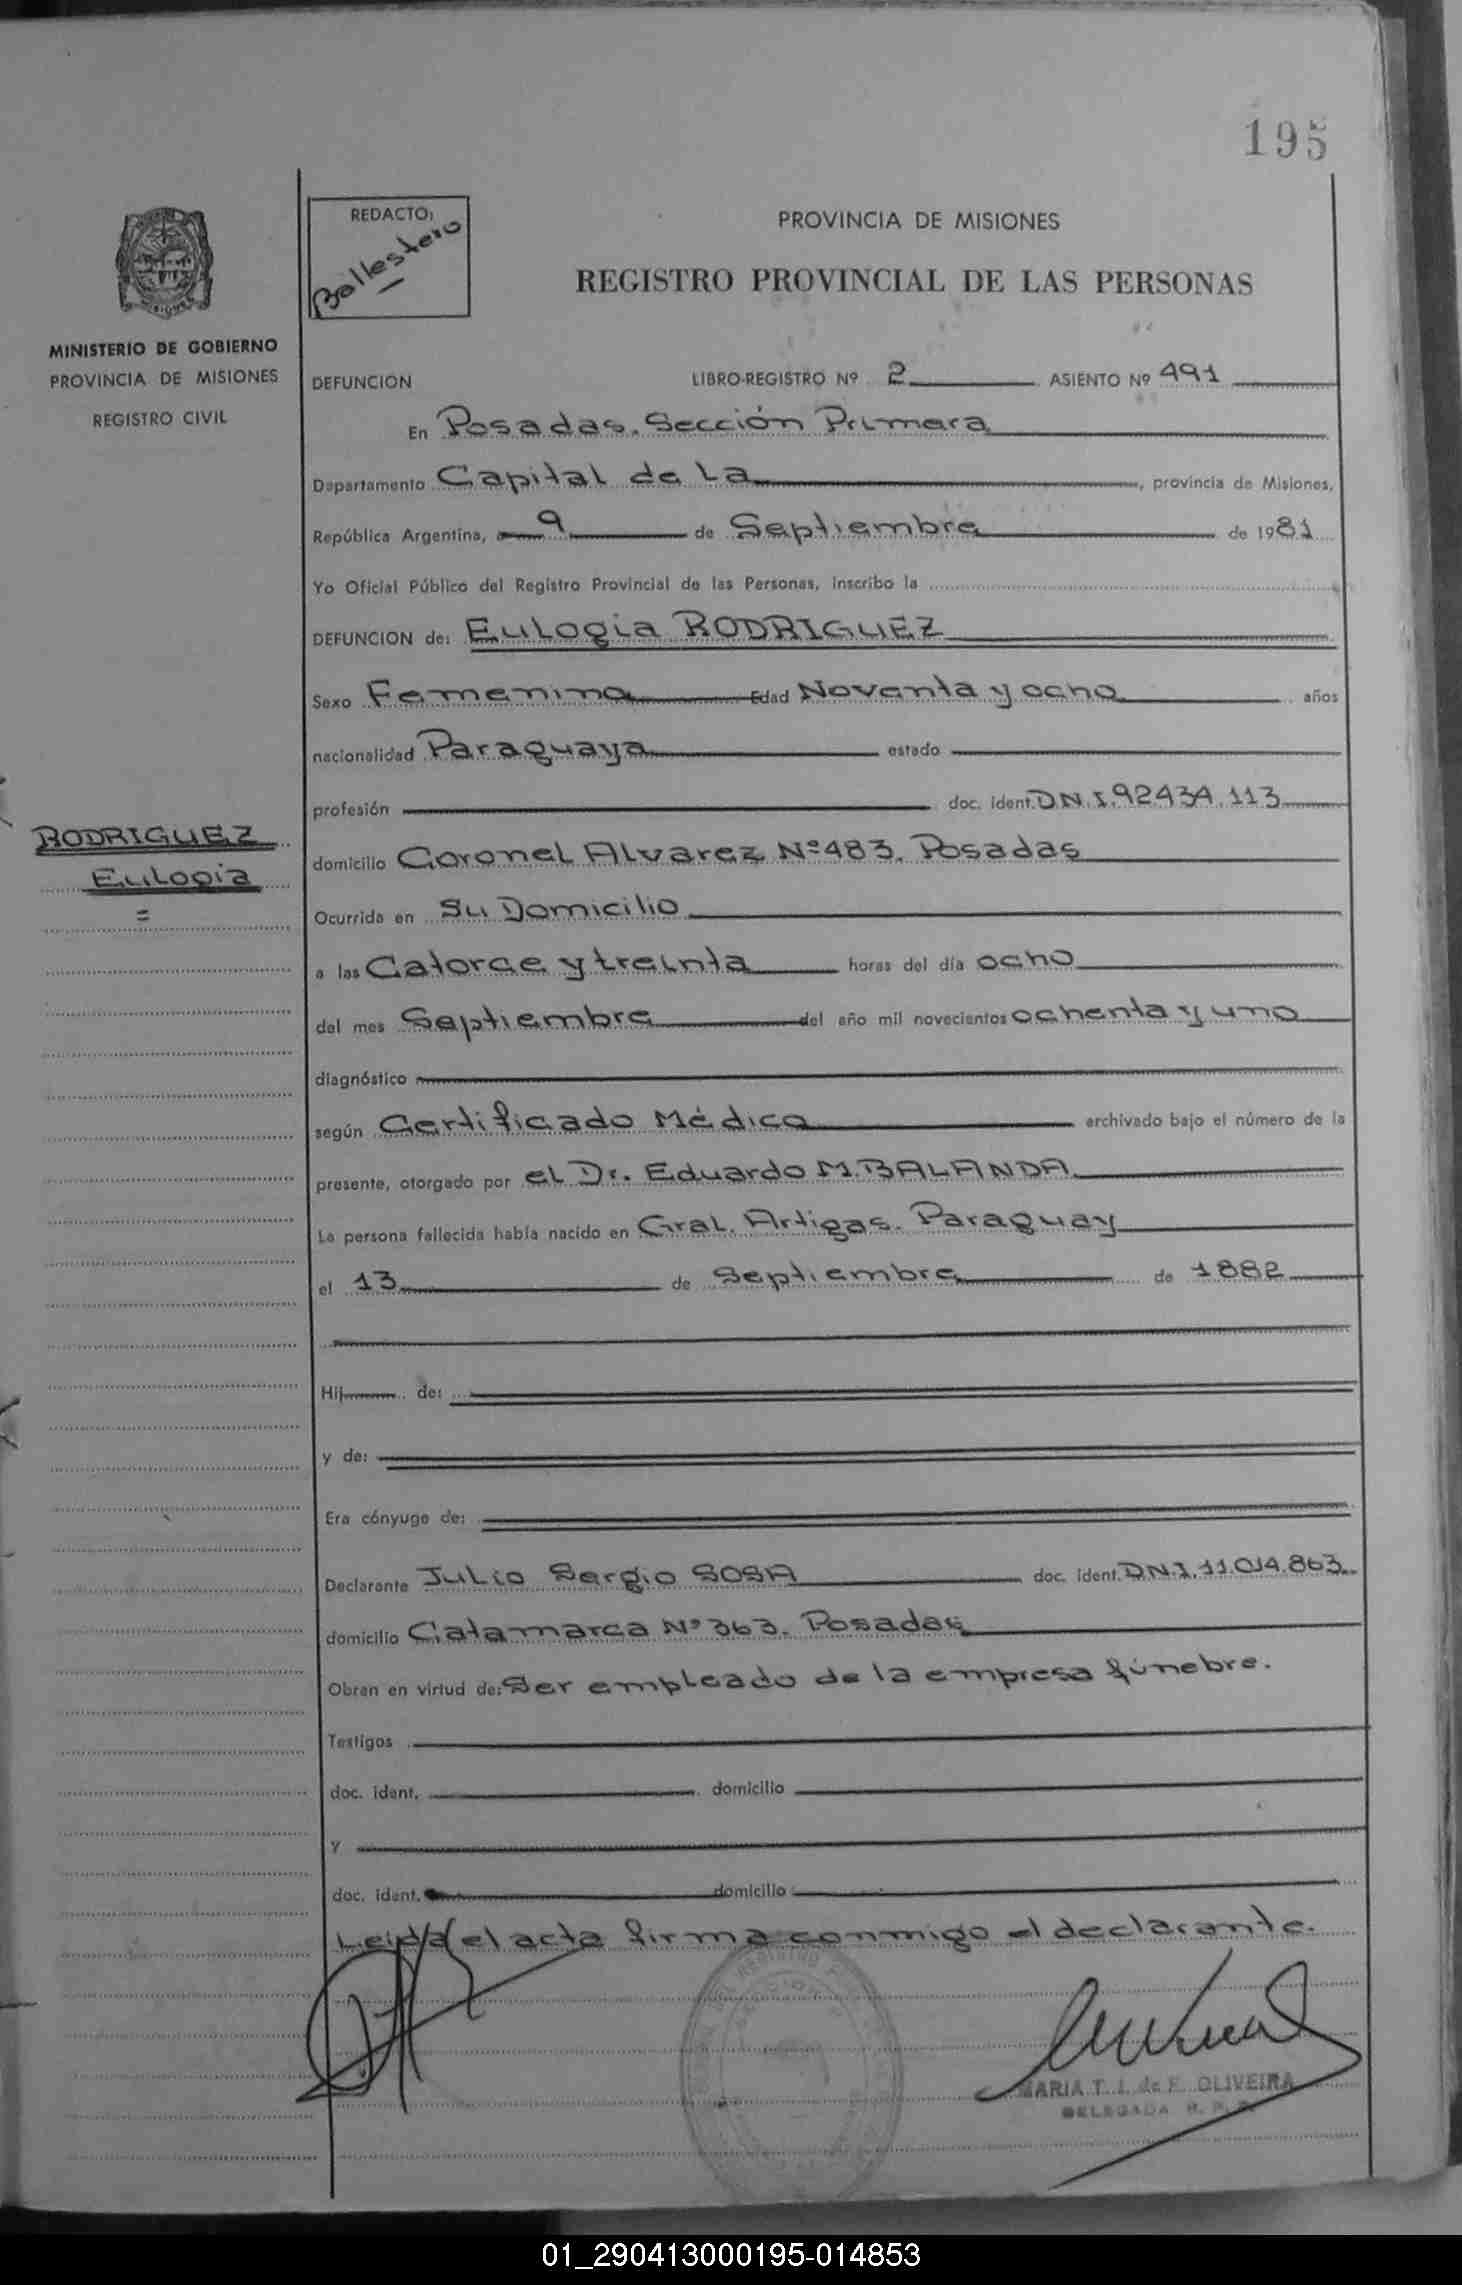 195
REDACTO:
Ballestero
PROVINCIA DE MISIONES
REGISTRO PROVINCIAL DE LAS PERSONAS
MINISTERIO DE GOBIERNO
PROVINCIA DE MISIONES
REGISTRO CIVIL
DEFUNCION LIBRO-REGISTRO Nº 2 ASIENTO Nº 491
En Posadas. Sección Primera
Departamento Capital de La, provincia de Misiones,
República Argentina, a 9 de Septiembre de 1981
Yo Oficial Público del Registro Provincial de las Personas, inscribo la
DEFUNCION de: Eulogia RODRIGUEZ
Sexo Femenino Edad Noventa y ocho años
nacionalidad Paraguaya estado
profesión doc. ident. D.N.I. 92.434.113
RODRIGUEZ
Eulogia
=
domicilio Coronel Alvarez Nº 483. Posadas
Ocurrida en Su Domicilio
a las Catorce y treinta horas del día ocho
del mes Septiembre del año mil novecientos ochenta y uno
diagnóstico
según Certificado Médico archivado bajo el número de la
presente, otorgado por el Dr. Eduardo M. BALANDA
La persona fallecida había nacido en Gral. Artigas. Paraguay
el 13 de Septiembre de 1882
Hij de:
y de:
Era cónyuge de:
Declarante Julio Sergio SOSA doc. ident. D.N.I. 11.014.863
domicilio Catamarca Nº 363. Posadas
Obran en virtud de: Ser empleado de la empresa fúnebre.
Testigos
doc. ident. domicilio
y
doc. ident. domicilio
Leída el acta firma conmigo el declarante.
MARIA T. I. de F. OLIVEIRA
DELEGADA R. P. P.
01_290413000195-014853